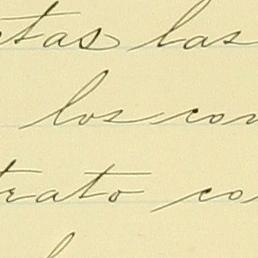 etas las
los con
trato co